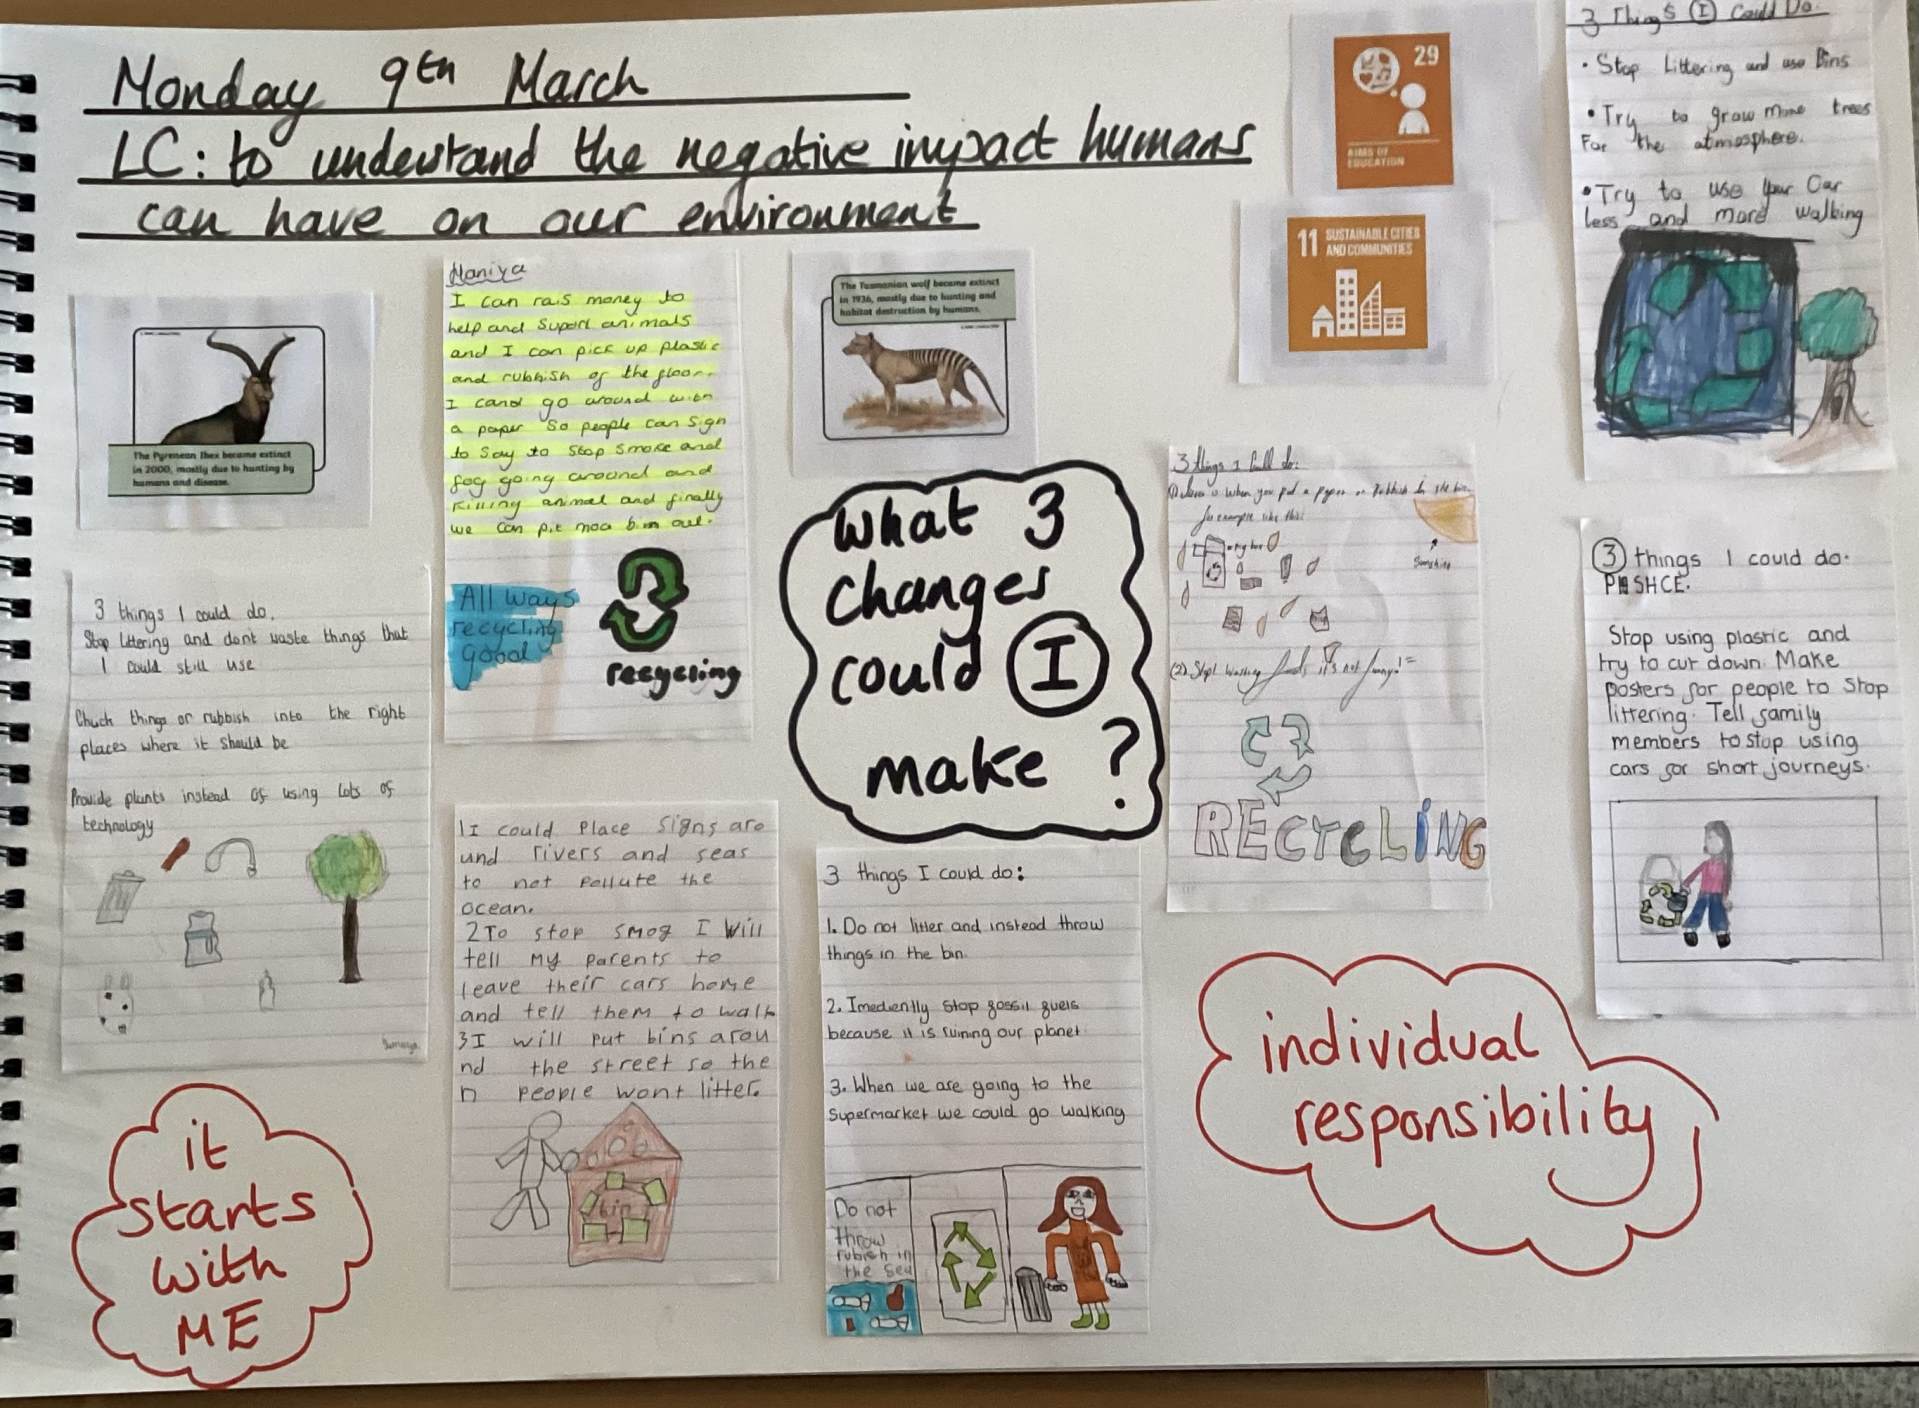 Monday 9th March
LC: to understand the negative impact humans
can have on our environment
29
AIMS OF
EDUCATION
11 SUSTAINABLE CITIES
AND COMMUNITIES
The Pyrenean Ibex became extinct
in 2000, mostly due to hunting by
humans and disease.
Haniya
I can rais money to
help and suport animals
and I can pick up plastic
and rubbish of the floor.
I cand go around with
a paper so people can sign
to say to stop smoke and
fog going around and
killing animal and finally
we can pit moa bin out.
All ways
recycling
good
recycling
The Tasmanian wolf became extinct
in 1936, mostly due to hunting and
habitat destruction by humans.
What 3
changes
could I
make ?
3 Things I Could Do.
• Stop Littering and use Bins
• Try to grow more trees
For the atmosphere.
• Try to use your Car
less and more walking
3 things I could do.
Stop littering and dont waste things that
I could still use
Chuck things or rubbish into the right
places where it should be
Provide plants instead of using lots of
technology
Sumaya
1 I could Place signs aro
und rivers and seas
to not pollute the
ocean.
2 To stop smog I Will
tell my parents to
leave their cars home
and tell them to walk
3 I will put bins arou
nd the street so the
n people wont litter.
bin
3 things I could do:
1. Do not litter and instead throw
things in the bin.
2. Imediently stop fossil fuels
because it is ruining our planet.
3. When we are going to the
supermarket we could go walking
Do not
throw
rubish in
the sea
3 things I do:
is when you put a paper or rubbish in the bin
for example like this:
Sunshine
(2). Stop wasting it's not funny!
RECYCLING
3 things I could do.
Stop using plastic and
try to cut down. Make
posters for people to stop
littering. Tell family
members to stop using
cars for short journeys.
individual
responsibility
it
starts
with
ME